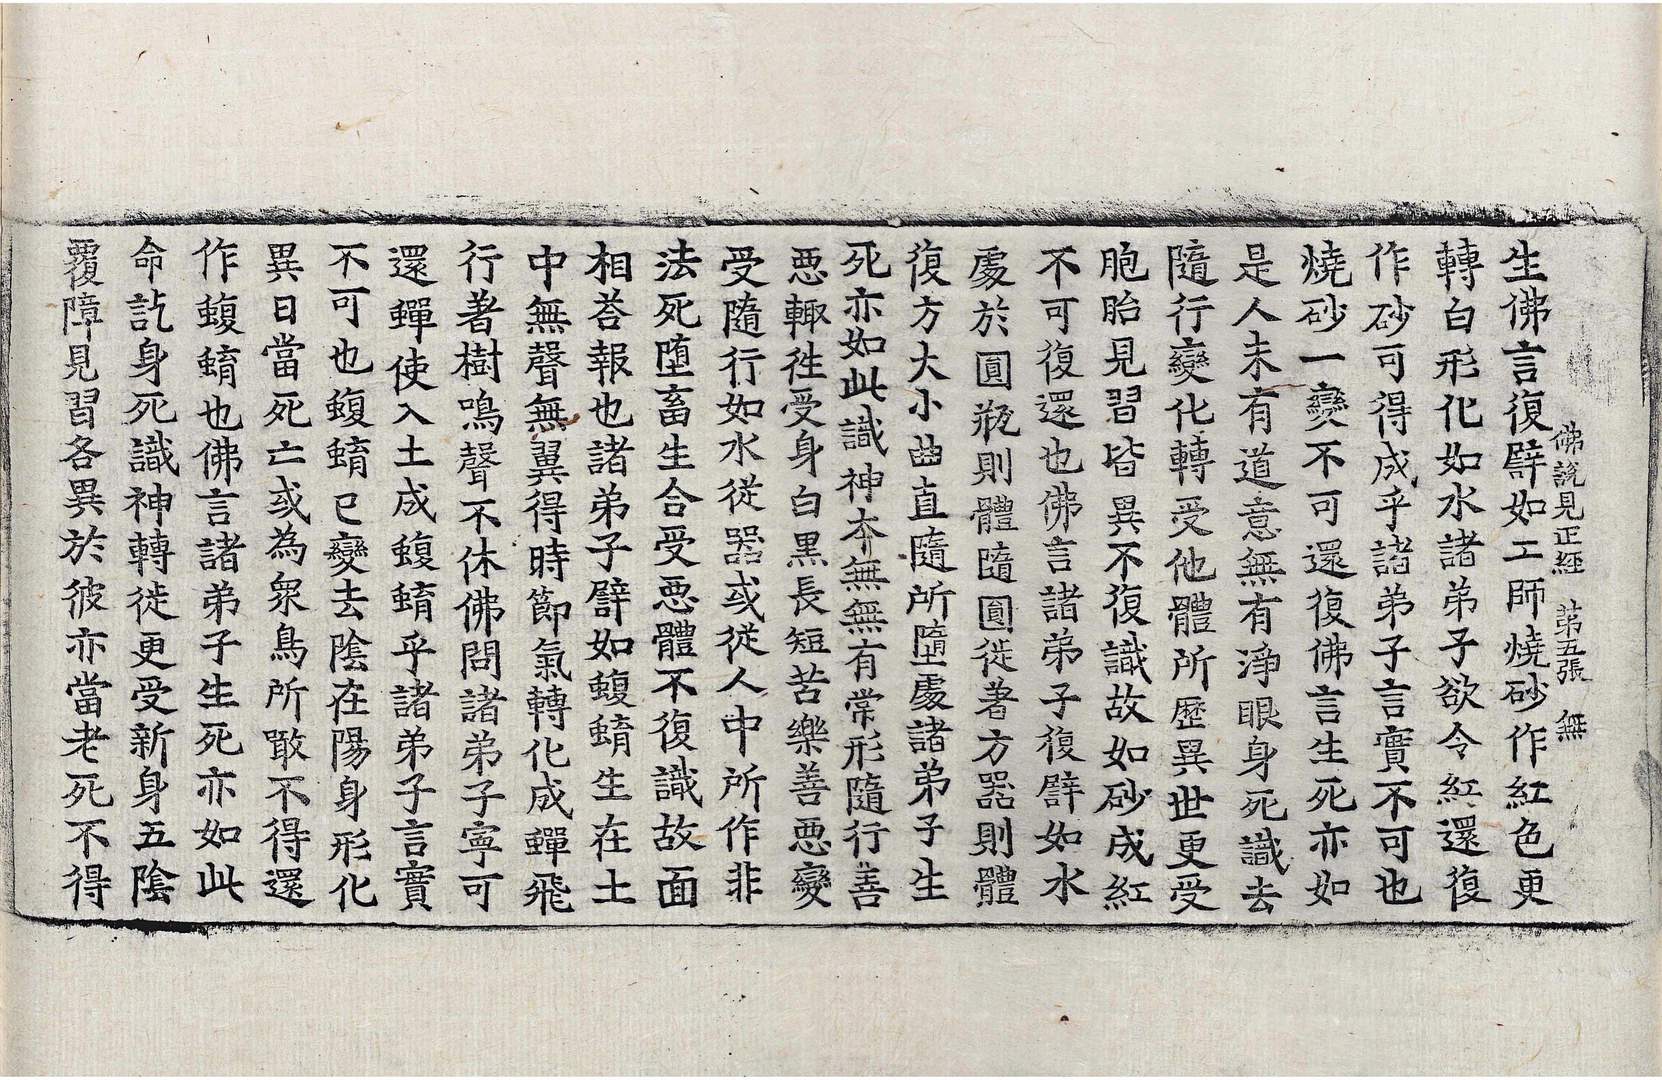 佛說見正經　第五張　無
生佛言復譬如工師燒砂作紅色更
轉白形化如水諸弟子欲令紅還復
作砂可得成乎諸弟子言實不可也
燒砂一變不可還復佛言生死亦如
是人未有道意無有淨眼身死識去
隨行變化轉受他體所歷異世更受
胞胎見習皆異不復識故如砂成紅
不可復還也佛言諸弟子復譬如水
處於圓甁則體隨圓徙著方器則體
復方大小曲直隨所墮處諸弟子生
死亦如此識神本無無有常形隨行善
惡輙徃受身白黑長短苦樂善惡變
受隨行如水從器或從人中所作非
法死堕畜生合受惡體不復識故面
相荅報也諸弟子譬如蝮蜟生在土
中無聲無翼得時節氣轉化成蟬飛
行著樹鳴聲不休佛問諸弟子寧可
還蟬使入土成蝮蜟乎諸弟子言實
不可也蝮蜟已變去陰在陽身形化
異日當死亡或為衆鳥所噉不得還
作蝮蜟也佛言諸弟子生死亦如此
命訖身死識神轉徙更受新身五陰
覆障見習各異於彼亦當老死不得